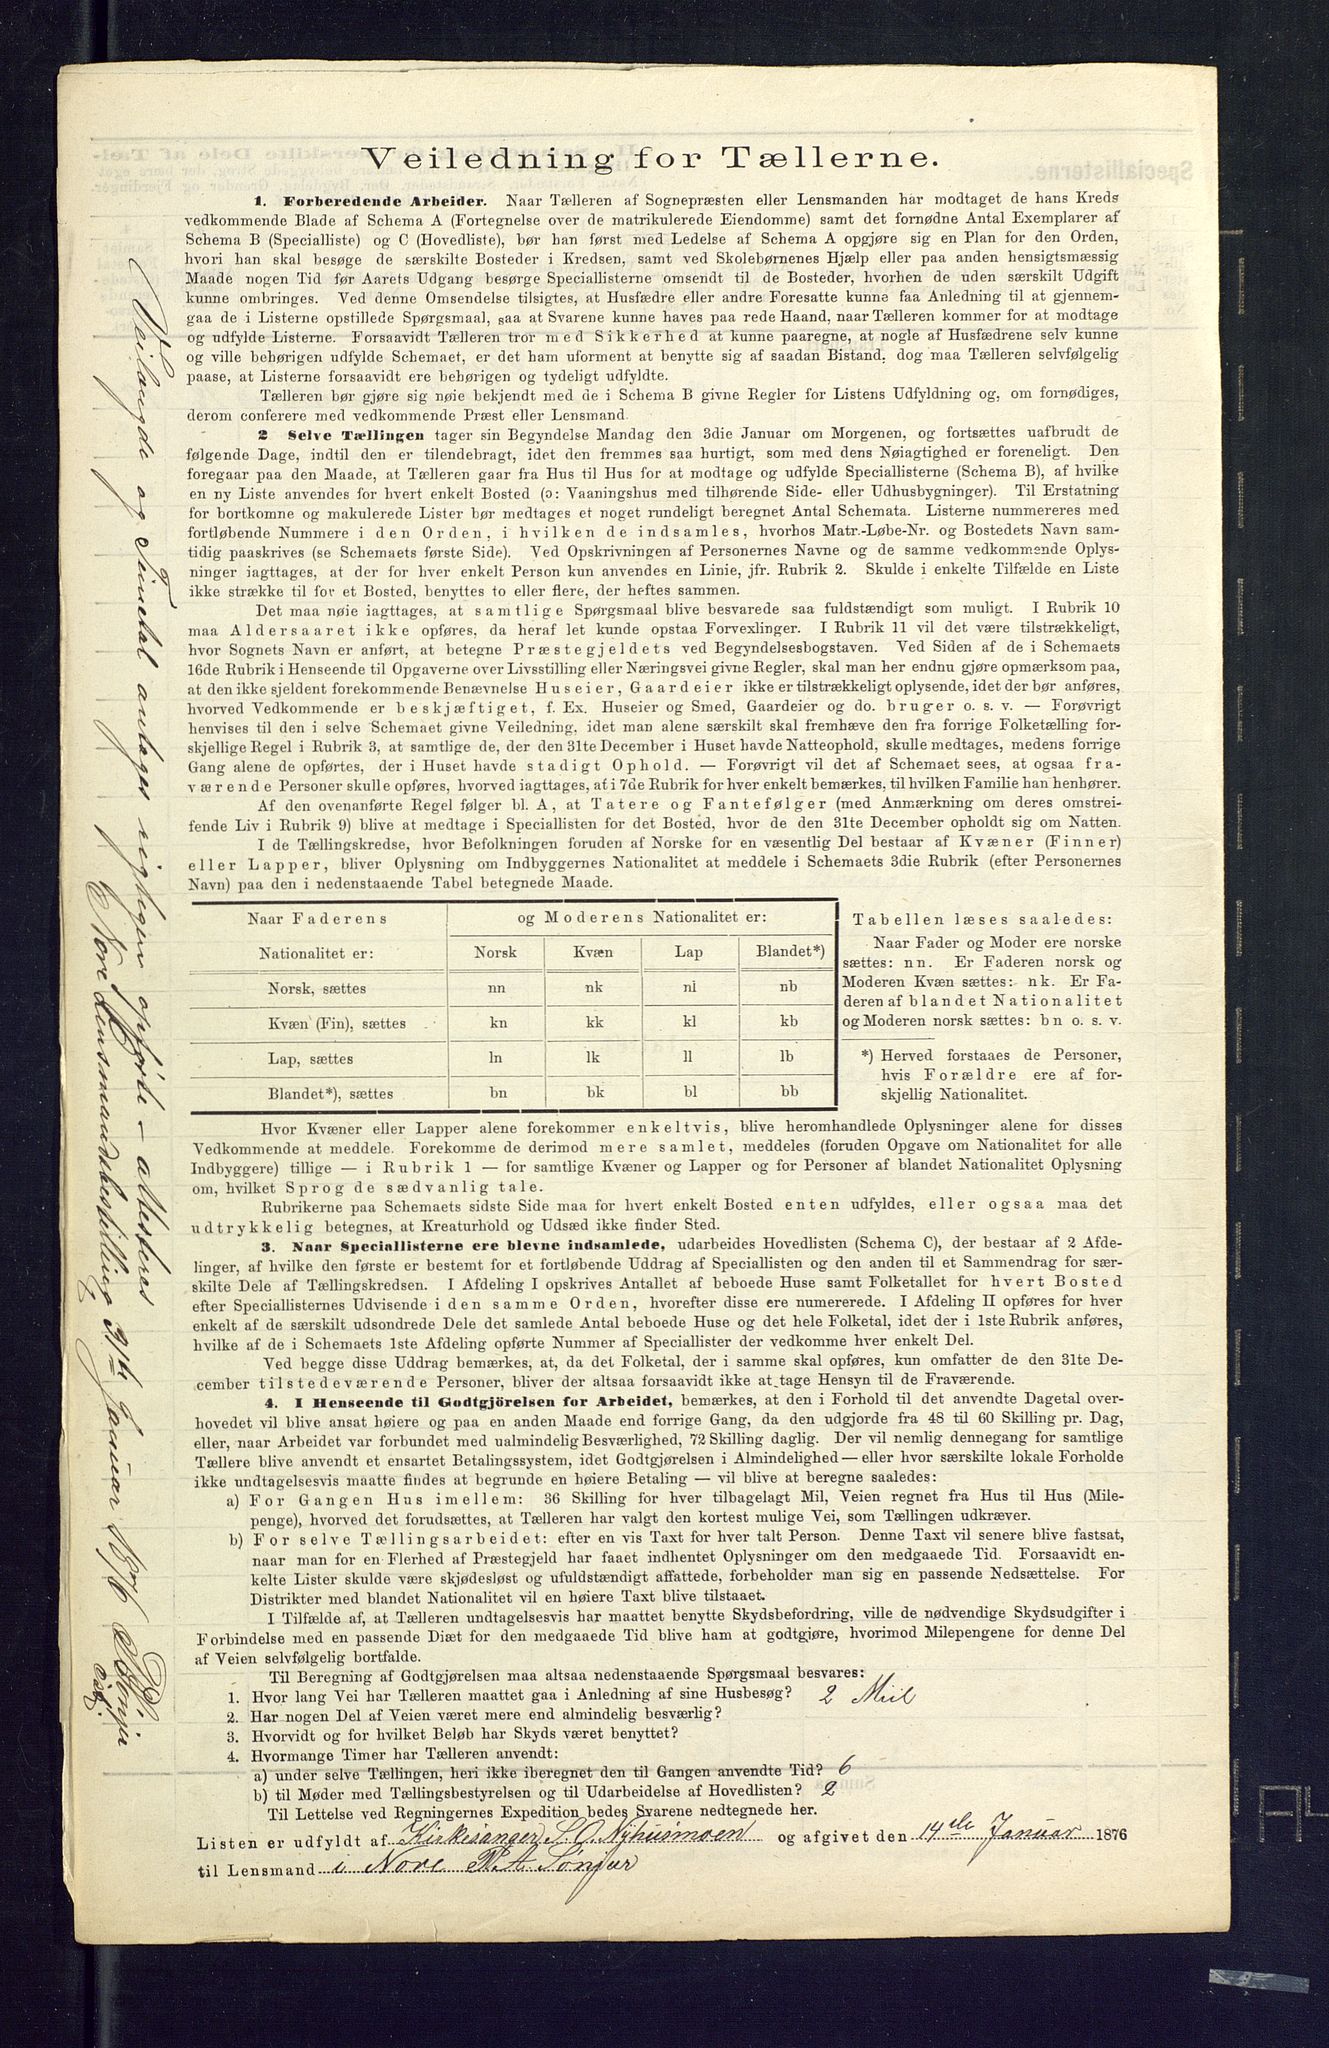 Veiledning for Tællerne.
1. Forberedende Arbeider. Naar Tælleren af Sognepræsten eller Lensmanden har modtaget de hans Kreds
vedkommende Blade af Schema A (Fortegnelse over de matrikulerede Eiendomme) samt det fornødne Antal Exemplarer af
Schema B (Specialliste) og C (Hovedliste), bør han først med Ledelse af Schema A opgjøre sig en Plan for den Orden,
hvori han skal besøge de særskilte Bosteder i Kredsen, samt ved Skolebørnenes Hjælp eller paa anden hensigtsmæssig
Maade nogen Tid før Aarets Udgang besørge Speciallisterne omsendt til de Bosteder, hvorhen de uden særskilt Udgift
kunne ombringes. Ved denne Omsendelse tilsigtes, at Husfædre eller andre Foresatte kunne faa Anledning til at gjennem-
gaa de i Listerne opstillede Spørgsmaal, saa at Svarene kunne haves paa rede Haand, naar Tælleren kommer for at modtage
og udfylde Listerne. Forsaavidt Tælleren tror med Sikkerhed at kunne paaregne, at nogle af Husfædrene selv kunne
og ville behørigen udfylde Schemaet, er det ham uforment at benytte sig af saadan Bistand, dog maa Tælleren selvfølgelig
paase, at Listerne forsaavidt ere behørigen og tydeligt udfyldte.
Tælleren bør gjøre sig nøie bekjendt med de i Schema B givne Regler for Listens Udfyldning og, om fornødiges,
derom conferere med vedkommende Præst eller Lensmand.
2 Selve Tællingen tager sin Begyndelse Mandag den 3die Januar om Morgenen, og fortsættes uafbrudt de
følgende Dage, indtil den er tilendebragt, idet den fremmes saa hurtigt, som med dens Nøiagtighed er foreneligt. Den
foregaar paa den Maade, at Tælleren gaar fra Hus til Hus for at modtage og udfylde Speciallisterne (Schema B), af hvilke
en ny Liste anvendes for hvert enkelt Bosted (ɔ: Vaaningshus med tilhørende Side- eller Udhusbygninger). Til Erstatning
for bortkomne og makulerede Lister bør medtages et noget rundeligt beregnet Antal Schemata. Listerne nummereres med
fortløbende Nummere i den Orden, i hvilken de indsamles, hvorhos Matr.-Løbe-Nr. og Bostedets Navn sam-
tidig paaskrives (se Schemaets første Side). Ved Opskrivningen af Personernes Navne og de samme vedkommende Oplys-
ninger iagttages, at der for hver enkelt Person kun anvendes en Linie, jfr. Rubrik 2. Skulde i enkelte Tilfælde en Liste
ikke strække til for et Bosted, benyttes to eller flere, der heftes sammen.
Det maa nøie iagttages, at samtlige Spørgsmaal blive besvarede saa fuldstændigt som muligt. I Rubrik 10
maa Aldersaaret ikke opføres, da heraf let kunde opstaa Forvexlinger. I Rubrik 11 vil det være tilstrækkeligt,
hvor Sognets Navn er anført, at betegne Præstegjeldets ved Begyndelsesbogstaven. Ved Siden af de i Schemaets
16de Rubrik i Henseende til Opgaverne over Livsstilling eller Næringsvei givne Regler, skal man her endnu gjøre opmærksom paa,
at den ikke sjeldent forekommende Benævnelse Huseier, Gaardeier ikke er tilstrækkeligt oplysende, idet der bør anføres,
hvorved Vedkommende er beskjæftiget, f. Ex. Huseier og Smed, Gaardeier og do. bruger o. s. v. — Forøvrigt
henvises til den i selve Schemaet givne Veiledning, idet man alene særskilt skal fremhæve den fra forrige Folketælling for-
skjellige Regel i Rubrik 3, at samtlige de, der den 31te December i Huset havde Natteophold, skulle medtages, medens forrige
Gang alene de opførtes, der i Huset havde stadigt Ophold. — Forøvrigt vil det af Schemaet sees, at ogsaa fra-
værende Personer skulle opføres, hvorved iagttages, at i 7de Rubrik for hver enkelt bemærkes, til hvilken Familie han henhører.
Af den ovenanførte Regel følger bl. A, at Tatere og Fantefølger (med Anmærkning om deres omstrei-
fende Liv i Rubrik 9) blive at medtage i Speciallisten for det Bosted, hvor de den 31te December opholdt sig om Natten.
I de Tællingskredse, hvor Befolkningen foruden af Norske for en væsentlig Del bestaar af Kvæner (Finner)
eller Lapper, bliver Oplysning om Indbyggernes Nationalitet at meddele i Schemaets 3die Rubrik (efter Personernes
Navn) paa den i nedenstaaende Tabel betegnede Maade.
Naar Faderens og Moderens Nationalitet er:
Nationalitet er: Norsk Kvæn Lap Blandet*)
Norsk, sættes nn nk nl nb
Kvæn (Fin), sættes kn kk kl kb
Lap, sættes ln lk ll lb
Blandet*), sættes bn bk bl bb
Tabellen læses saaledes:
Naar Fader og Moder ere norske
sættes: nn. Er Faderen norsk og
Moderen Kvæn sættes: nk. Er Fa-
deren af blandet Nationalitet
og Moderen norsk sættes: bn o. s. v.
*) Herved forstaaes de Personer,
hvis Forældre ere af for-
skjellig Nationalitet.
Hvor Kvæner eller Lapper alene forekommer enkeltvis, blive heromhandlede Oplysninger alene for disses
Vedkommende at meddele. Forekomme de derimod mere samlet, meddeles (foruden Opgave om Nationalitet for alle
Indbyggere) tillige — i Rubrik 1 — for samtlige Kvæner og Lapper og for Personer af blandet Nationalitet Oplysning
om, hvilket Sprog de sædvanlig tale.
Rubrikerne paa Schemaets sidste Side maa for hvert enkelt Bosted enten udfyldes, eller ogsaa maa det
udtrykkelig betegnes, at Kreaturhold og Udsæd ikke finder Sted.
3. Naar Speciallisterne ere blevne indsamlede, udarbeides Hovedlisten (Schema C), der bestaar af 2 Afde-
linger, af hvilke den første er bestemt for et fortløbende Uddrag af Speciallisten og den anden til et Sammendrag for sær-
skilte Dele af Tællingskredsen. I Afdeling I opskrives Antallet af beboede Huse samt Folketallet for hvert Bosted
efter Speciallisternes Udvisende i den samme Orden, hvorefter disse ere nummererede. I Afdeling II opføres for hver
enkelt af de særskilt udsondrede Dele det samlede Antal beboede Huse og det hele Folketal, idet der i 1ste Rubrik anføres,
hvilke af de i Schemaets 1ste Afdeling opførte Nummer af Speciallister der vedkomme hver enkelt Del.
Ved begge disse Uddrag bemærkes, at, da det Folketal, der i samme skal opføres, kun omfatter de den 31te De-
cember tilstedeværende Personer, bliver der altsaa forsaavidt ikke at tage Hensyn til de Fraværende.
4. I Henseende til Godtgjörelsen for Arbeidet, bemærkes, at den i Forhold til det anvendte Dagetal over-
hovedet vil blive ansat høiere og paa en anden Maade end forrige Gang, da den udgjorde fra 48 til 60 Skilling pr. Dag,
eller, naar Arbeidet var forbundet med ualmindelig Besværlighed, 72 Skilling daglig. Der vil nemlig dennegang for samtlige
Tællere blive anvendt et ensartet Betalingssystem, idet Godtgjørelsen i Almindelighed — eller hvor særskilte lokale Forholde
ikke undtagelsesvis maatte findes at begrunde en høiere Betaling — vil blive at beregne saaledes:
a) For Gangen Hus imellem: 36 Skilling for hver tilbagelagt Mil, Veien regnet fra Hus til Hus (Mile-
penge), hvorved det forudsættes, at Tælleren har valgt den kortest mulige Vei, som Tællingen udkræver.
b) For selve Tællingsarbeidet: efter en vis Taxt for hver talt Person. Denne Taxt vil senere blive fastsat,
naar man for en Flerhed af Præstegjeld har faaet indhentet Oplysninger om den medgaaede Tid. Forsaavidt en-
kelte Lister skulde være skjødesløst og ufuldstændigt affattede, forbeholder man sig en passende Nedsættelse. For
Distrikter med blandet Nationalitet vil en høiere Taxt blive tilstaaet.
I Tilfælde af, at Tælleren undtagelsesvis har maattet benytte Skydsbefordring, ville de nødvendige Skydsudgifter i
Forbindelse med en passende Diæt for den medgaaede Tid blive ham at godtgjøre, hvorimod Milepengene for denne Del
af Veien selvfølgelig bortfalde.
Til Beregning af Godtgjørelsen maa altsaa nedenstaaende Spørgsmaal besvares:
1. Hvor lang Vei har Tælleren maattet gaa i Anledning af sine Husbesøg? 2 Miil
2. Har nogen Del af Veien været mere end almindelig besværlig?
3. Hvorvidt og for hvilket Beløb har Skyds været benyttet?
4. Hvormange Timer har Tælleren anvendt:
a) under selve Tællingen, heri ikke iberegnet den til Gangen anvendte Tid? 6
b) til Møder med Tællingsbestyrelsen og til Udarbeidelse af Hovedlisten? 2
Til Lettelse ved Regningernes Expedition bedes Svarene nedtegnede her.
Listen er udfyldt af Kirkesanger S. O. Nyhusmoen og afgivet den 14de Januar 1876
til Lensmand i Nore P. A. Sønjur
Veilængde og Timetal antages rigtigen opførte – attesteres
Nore Lensmandsbestilling Januar 1876